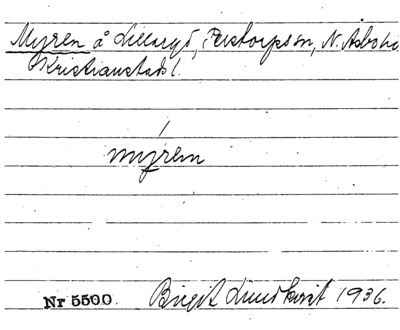 Myren å Lillaryd, Perstorps sn, N. Åsbo hd
Kristianstads l.
myren
Nr 5500. Birgit Lindkvist 1936.